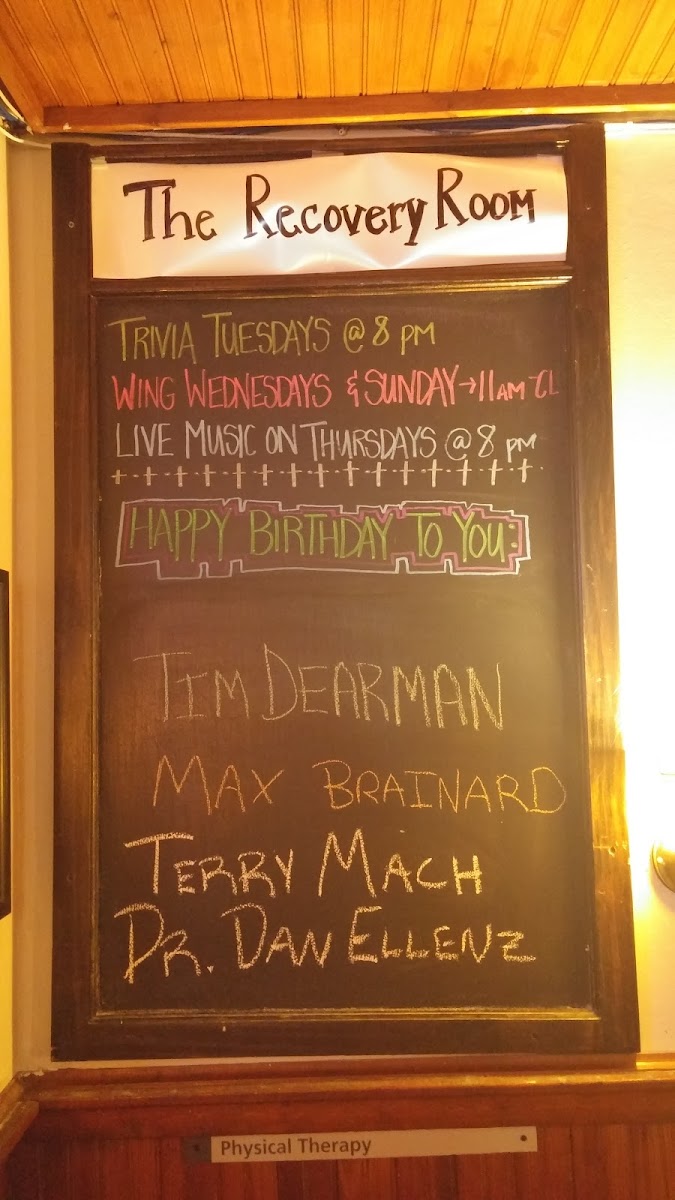 The Recovery Room
TRIVIA TUESDAYS @ 8 PM
WING WEDNESDAYS & SUNDAY → 11AM CL
LIVE MUSIC ON THURSDAYS @ 8 PM
HAPPY BIRTHDAY TO YOU:
TIM DEARMAN
MAX BRAINARD
TERRY MACH
DR. DAN ELLENZ
Physical Therapy